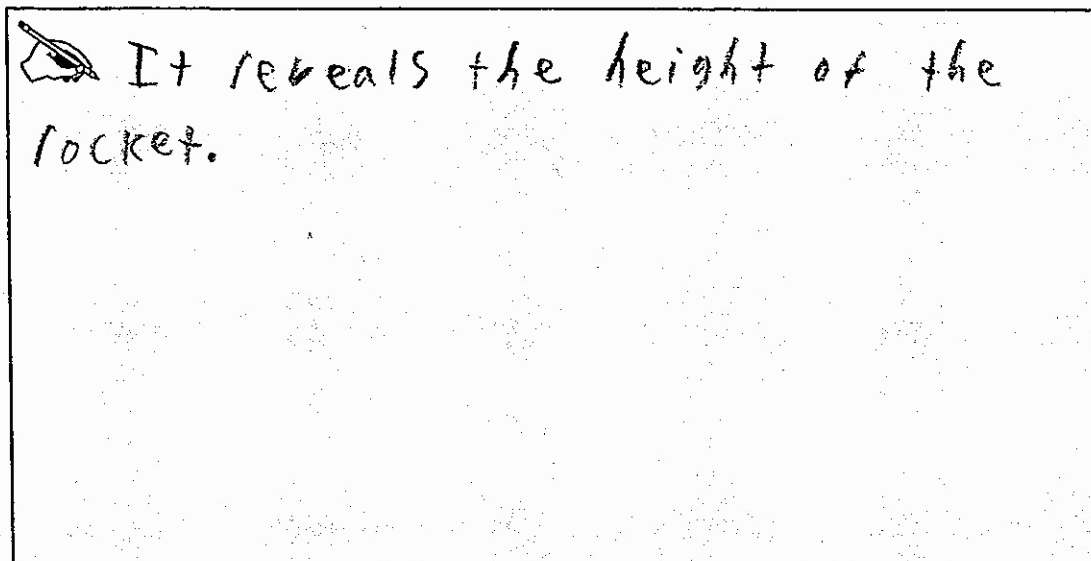 It reveals the height of the
rocket.